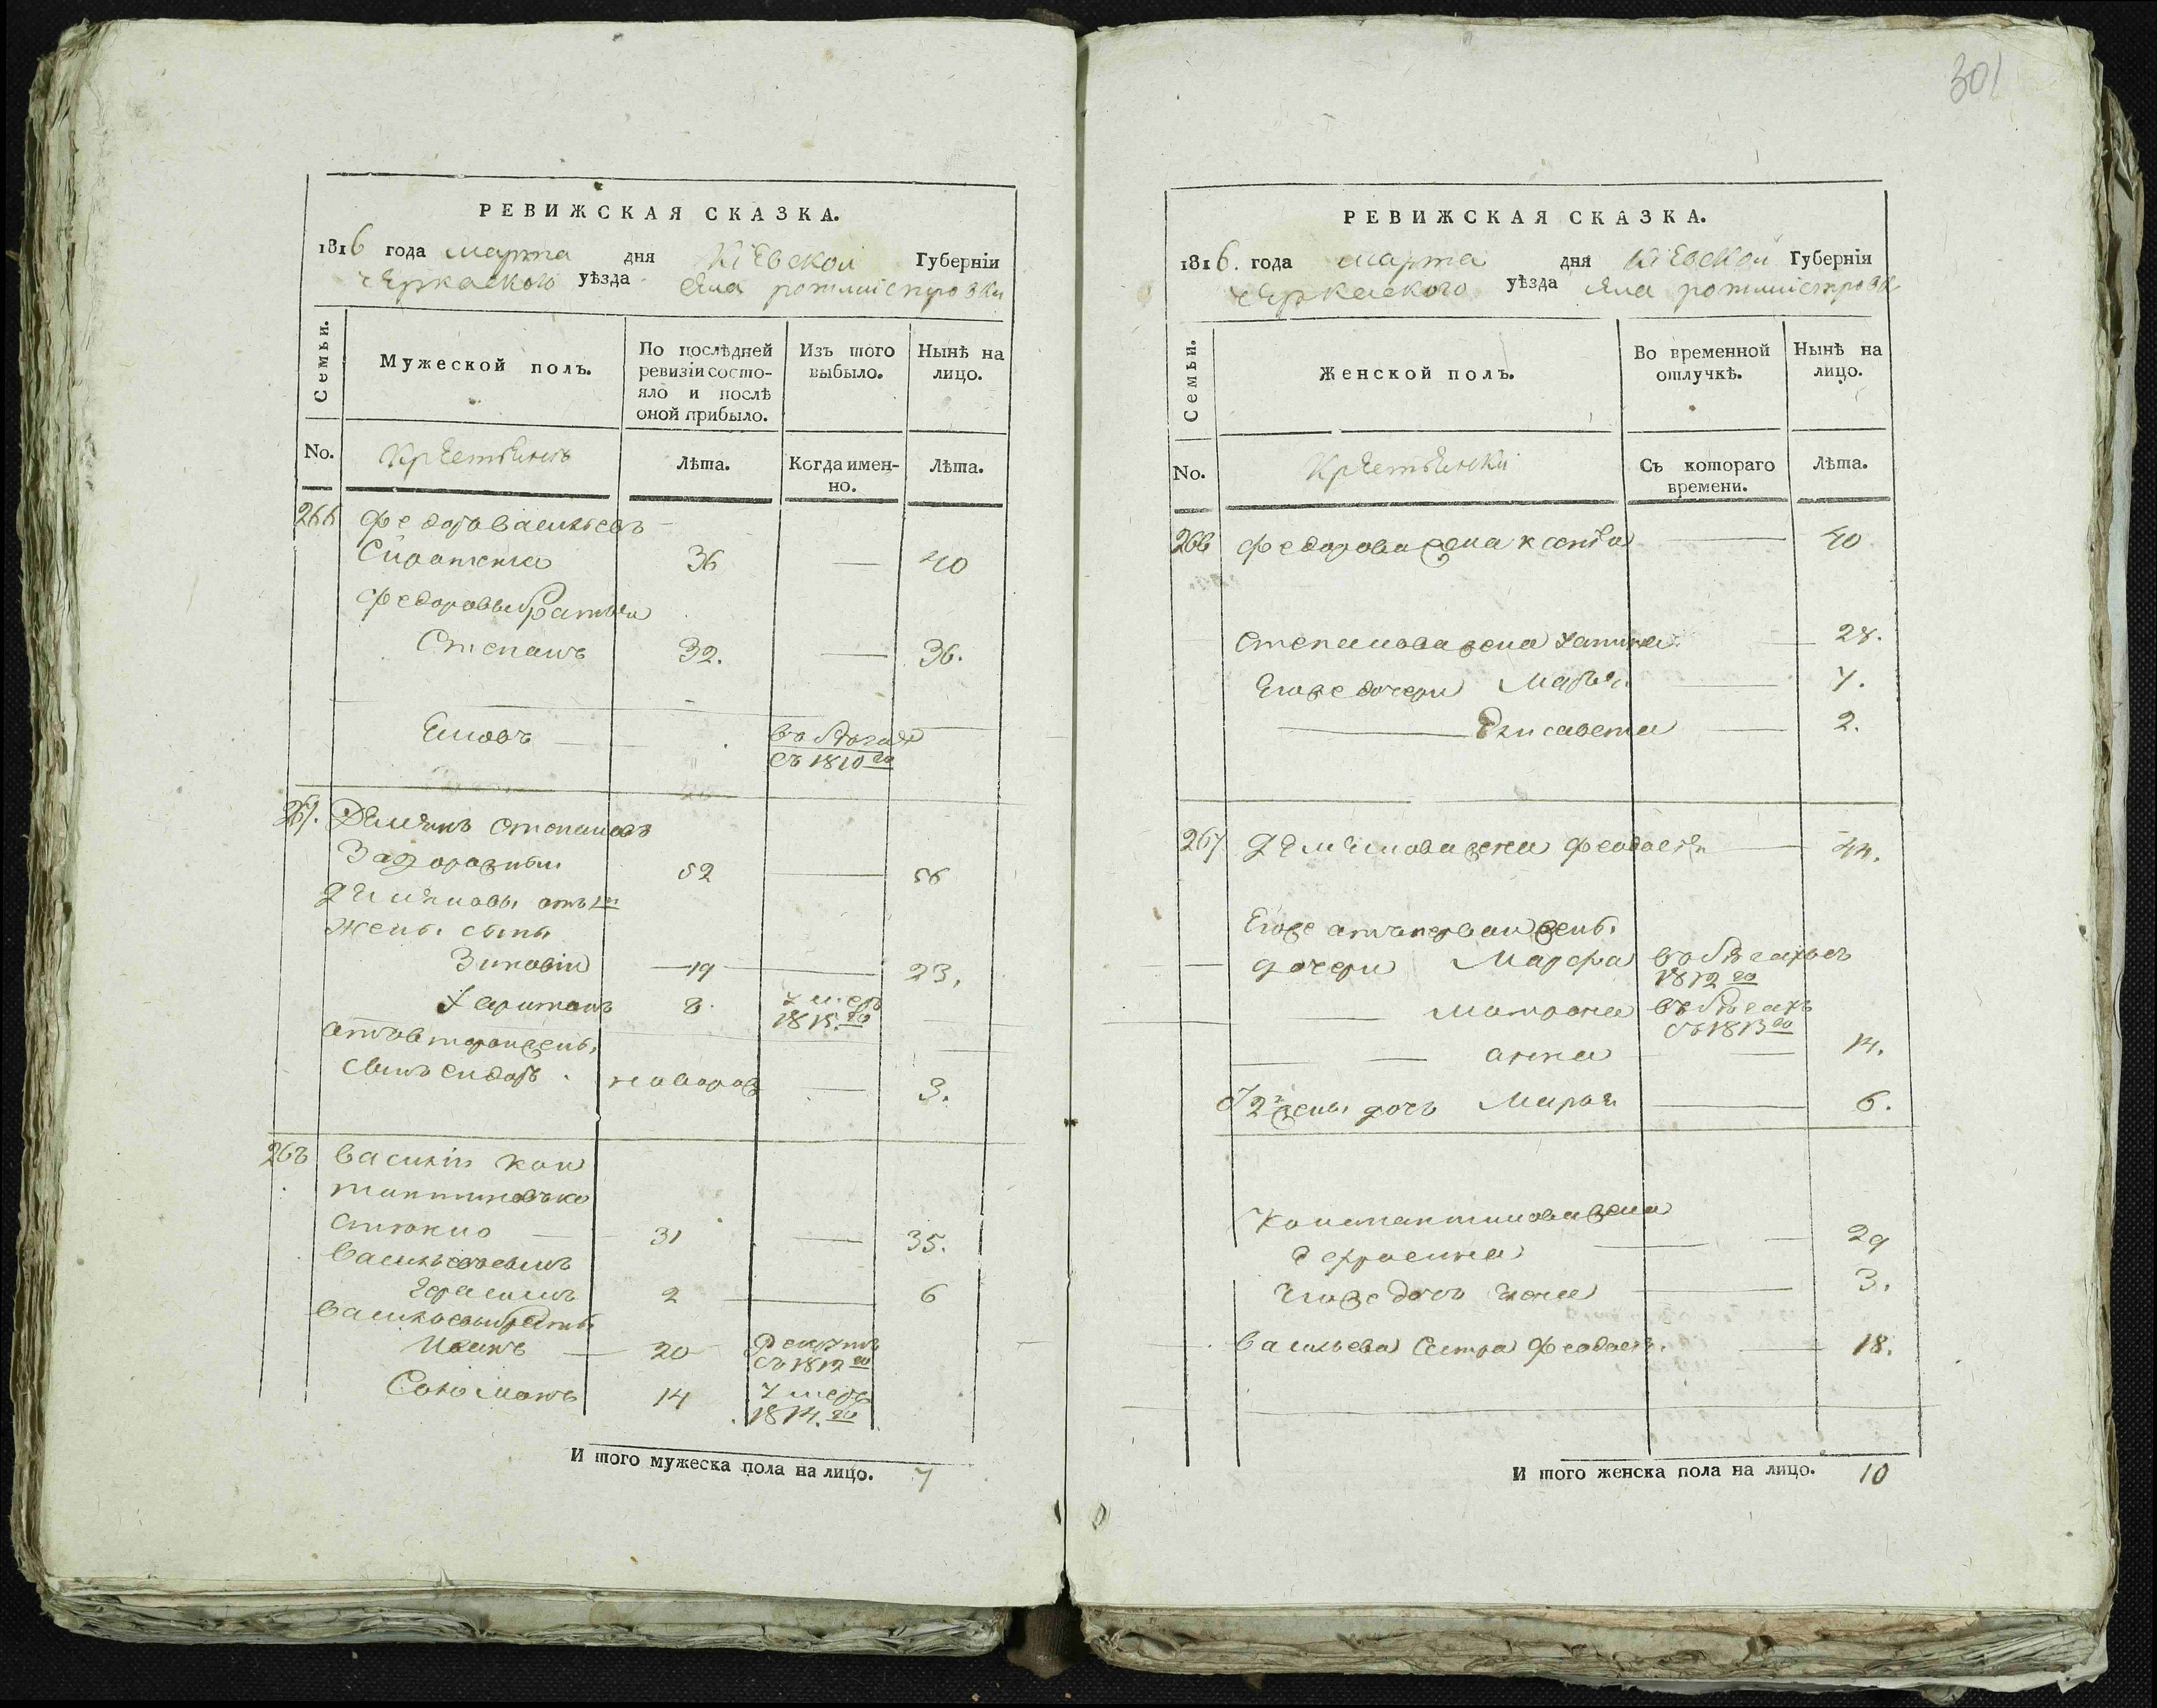 301
РЕВИЖСКАЯ СКАЗКА.
1816 года марта дня Кіевской Губерніи
Черкаского уѣзда села ротмистровки
Семьи.
Мужеской полъ.
По послѣдней ревизіи состояло и послѣ оной прибыло.
Изъ того выбыло.
Нынѣ на лицо.
No.
Крестьянъ
Лѣта.
Когда именно.
Лѣта.
266 Федоръ васильевъ
Сиротенко 36 — 40
Федоровы братья
Степанъ 32. — 36.
въ бѣгахъ
съ 1810 го
267. Демянъ степановъ
Задорожный 52 — 56
Демяновы отъ 1й
жены сыны
Зиновіи 19 — 23.
Харитонъ 8. умеръ
1815. го
отъ второй жены
сынъ сидоръ. новорож — 3.
268 василіи кон
стантиновъ ко
31 — 35.
васильевъ сынъ
Герасимъ 2 — 6
васильевы братья
Иванъ — 20 рекрутъ
съ 1812 го
Соломонъ 14 умеръ
1814. го
И того мужеска пола на лицо. 7
РЕВИЖСКАЯ СКАЗКА.
1816. года марта дня Кіевской Губерніи
Черкаского уѣзда села ротмистровк
Семьи.
Женской полъ.
Во временной отлучкѣ.
Нынѣ на лицо.
No.
Крестьянки
Съ котораго времени.
Лѣта.
266 Федорова жена ксенія — 40
Степанова жена 28.
Егоже дочери Марья — 7.
— Елисавета — 2.
267 Демянова жена феодосія — 44.
Егоже отъ первой жены
дочери Марфа въ бѣгахъ съ
1812 го
— матрона въ бѣгахъ
съ 1813 го
— — анна — 14.
2й жены дочь Марья — 6.
Константинова жена
Ефросина — 29
Егоже дочь — 3.
васильева сестра феодося. — 18.
И того женска пола на лицо. 10